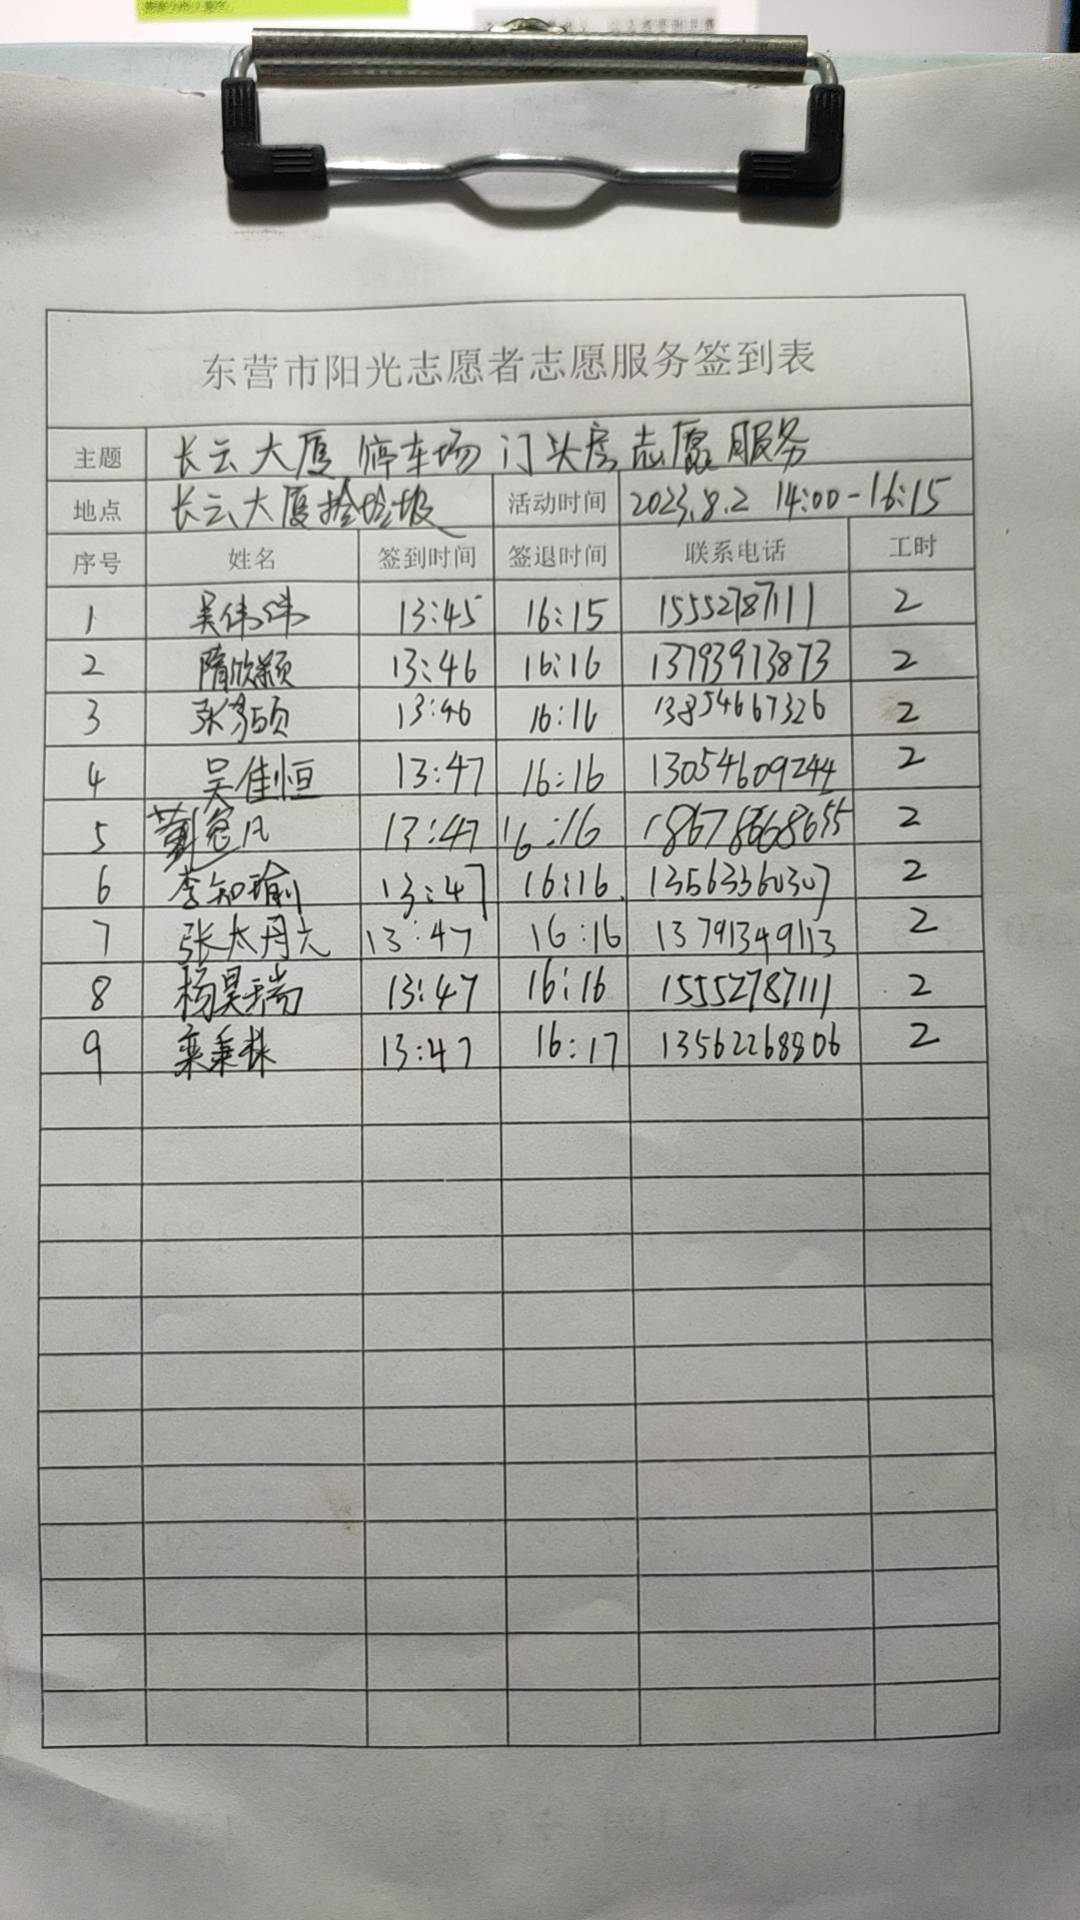 东营市阳光志愿者志愿服务签到表
主题 长云大厦 停车场 门头房 志愿服务
地点 长云大厦 活动时间 2023.8.2 14:00-16:15
序号 姓名 签到时间 签退时间 联系电话 工时
1 吴伟伟 13:45 16:15 15552787111 2
2 隋欣颖 13:46 16:16 13793973873 2
3 13:46 16:16 13854667326 2
4 吴佳恒 13:47 16:16 13054609244 2
5 13:47 16:16 18678668655 2
6 李知瑜 13:47 16:16 13563360307 2
7 张太丹 13:47 16:16 13791349113 2
8 杨昊瑞 13:47 16:16 15552787111 2
9 栾秉 13:47 16:17 13562268806 2